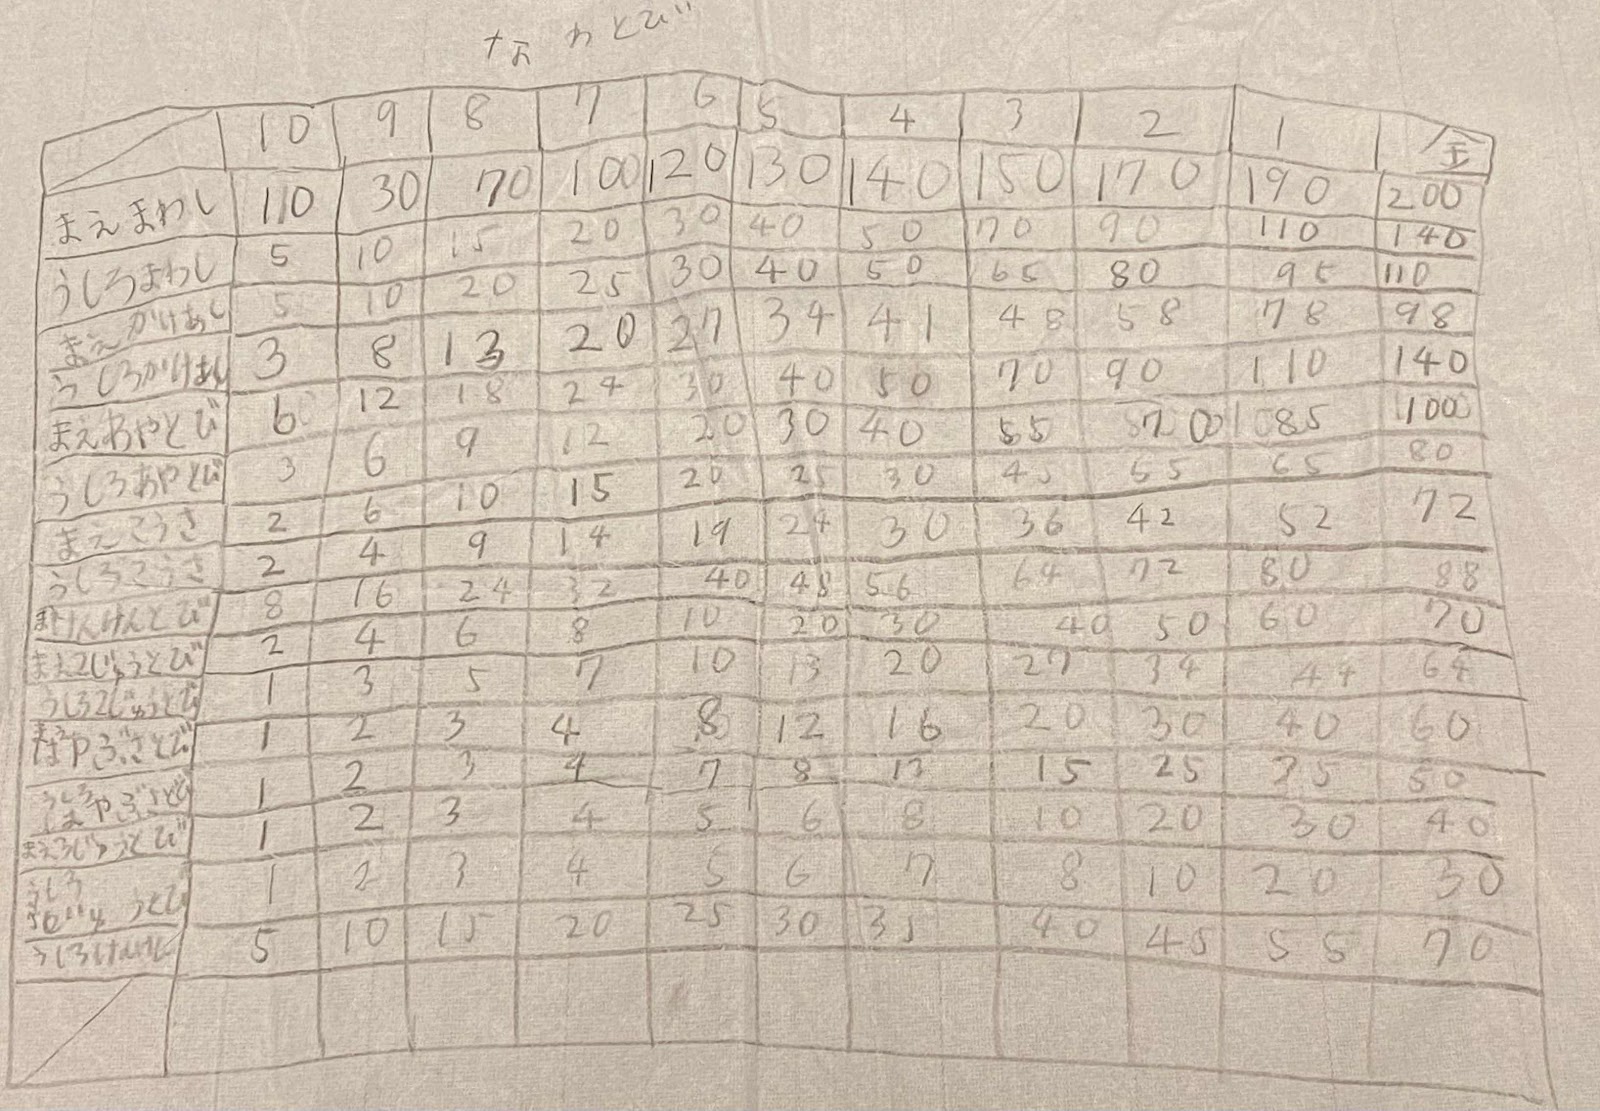 なわとび
10 9 8 7 6 5 4 3 2 1 金
まえまわし 110 30 70 100 120 130 140 150 170 190 200
うしろまわし 5 10 15 20 30 40 50 70 90 110 140
まえかけあし 5 10 20 25 30 40 50 65 80 95 110
うしろかけあし 3 8 13 20 27 34 41 48 58 78 98
まえあやとび 6 12 18 24 30 40 50 70 90 110 140
うしろあやとび 3 6 9 12 20 30 40 55 85 100
まえこうさ 2 6 10 15 20 25 30 45 55 65 80
うしろこうさ 2 4 9 14 19 24 30 36 42 52 72
けんけんとび 8 16 24 32 40 48 56 64 72 80 88
まえ2じゅうとび 2 4 6 8 10 20 30 40 50 60 70
うしろ2じゅうとび 1 3 5 7 10 13 20 27 34 44 64
まえ
はやぶさとび 1 2 3 4 8 12 16 20 30 40 60
うしろ
はやぶさとび 1 2 3 4 7 8 13 15 25 35 50
まえ3じゅうとび 1 2 3 4 5 6 8 10 20 30 40
うしろ
3じゅうとび 1 2 3 4 5 6 7 8 10 20 30
うしろけんけん 5 10 15 20 25 30 35 40 45 55 70